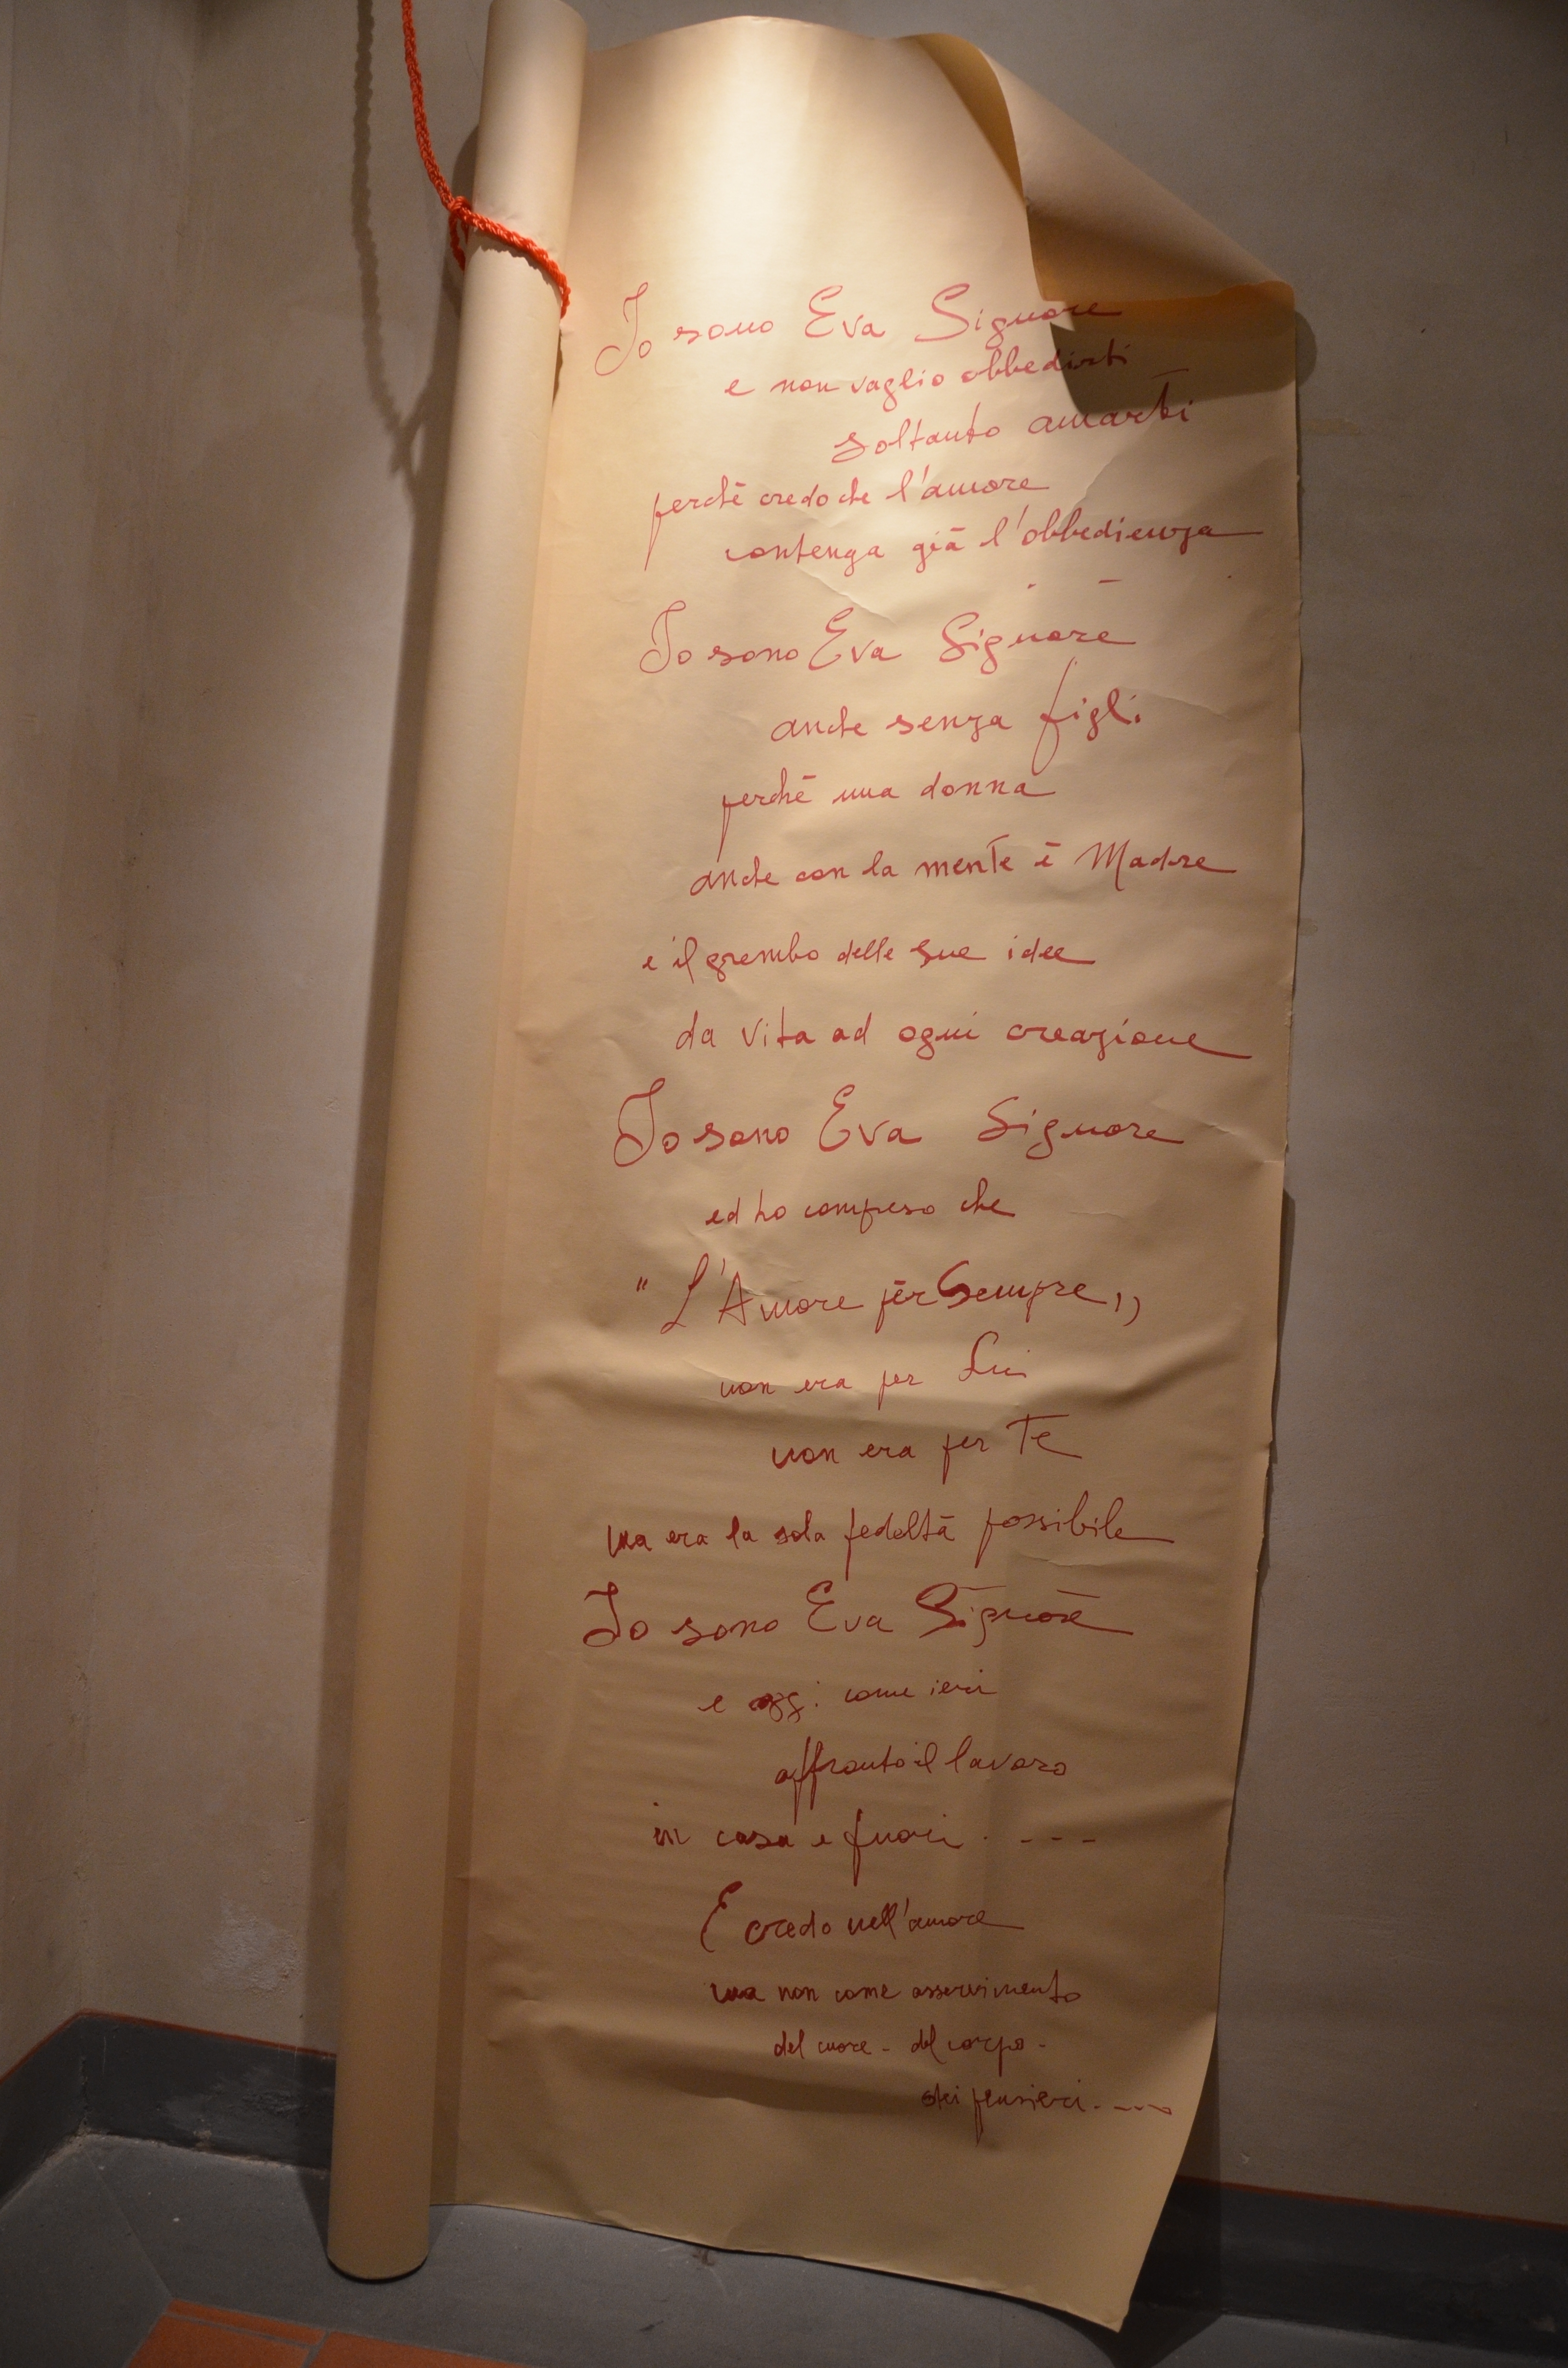 Io sono Eva Signore
e non voglio obbedirti
soltanto amarti
perchē credo che l'amore
contenga giā l'obbedienza
Io sono Eva Signore
anche senza figli
perchē una donna
anche con la mente ē Madre
e il grembo delle sue idee
da vita ad ogni creazione
Io sono Eva Signore
ed ho compreso che
"L'Amore per Sempre,,
non era per Lui
non era per Te
ma era la sola fedeltā possibile
Io sono Eva Signore
e oggi come ieri
affronto il lavoro
in casa e fuori. - - -
E credo nell'amore
ma non come asservimento
del cuore - del corpo -
dei pensieri - - - -